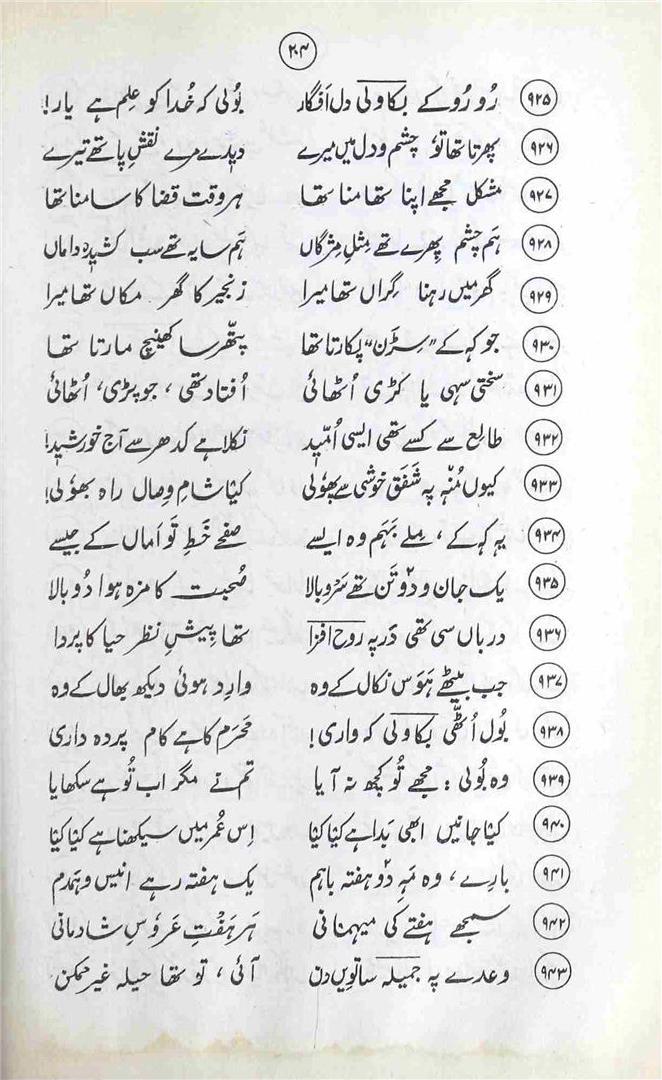 ۲۰۴
۹۲۵ رُو رُو کے بکاولی دل اَفگار بُولی کہ خُدا کو عِلم ہے یار!
۹۲۶ پھرتا تھا تُو چشم و دل میں میرے دیدے مرے نقشِ پا تھے تیرے
۹۲۷ مشکل مجھے اپنا تھامنا تھا ہر وقت قضا کا سامنا تھا
۹۲۸ ہَم چشم پِھرے تھے مِثلِ مِژگاں ہَم سایہ تھے سب کشیدہ داماں
۹۲۹ گھر میں رہنا گِراں تھا میرا زنجیر کا گھر مکاں تھا میرا
۹۳۰ جو کہہ کے "سِڑَن" پکارتا تھا پتّھر سا کھینچ مارتا تھا
۹۳۱ سختی سہی یا کڑی اُٹھائی اُفتاد تھی، جو پڑی، اُٹھائی
۹۳۲ طالِع سے کسے تھی ایسی اُمّید نکلا ہے کدھر سے آج خورشید!
۹۳۳ کیوں مُنْہ پہ شَفَق خوشی سے پھولی کیا شامِ وِصال راہ بھولی!
۹۳۴ یہ کہہ کے، ملے بَہَم وہ ایسے صفحے خَطِ تَو اَماں کے جیسے
۹۳۵ یک جان و دو تَن تھے سَرو بالا صُحبت کا مزہ ہوا دُو بالا
۹۳۶ درباں سی تھی دَر پہ روح افزا تھا پیشِ نظر حیا کا پردا
۹۳۷ جب بیٹھے ہَوَس نکال کے وہ وارِد ہوئی دیکھ بھال کے وہ
۹۳۸ بُول اُٹھّی بکاولی کہ واری! مَحرَم کا ہے کام پردہ داری
۹۳۹ وہ بُولی: مجھے تُو کچھ نہ آیا تم نے مگر اب تُو ہے سکھایا
۹۴۰ کیا جانیں ابھی بَدا ہے کیا کیا اِس عُمر میں سیکھنا ہے کیا کیا
۹۴۱ بارے، وہ مَہِ دُو ہفتہ باہم یک ہفتہ رہے انیس و ہمدم
۹۴۲ سمجھے ہفتے کی میہمانی ہَر ہَفْتِ عَروُسِ شادمانی
۹۴۳ وعدے پہ جمیلہ ساتویں دن آئی، تو تھا حیلہ غیر ممکن